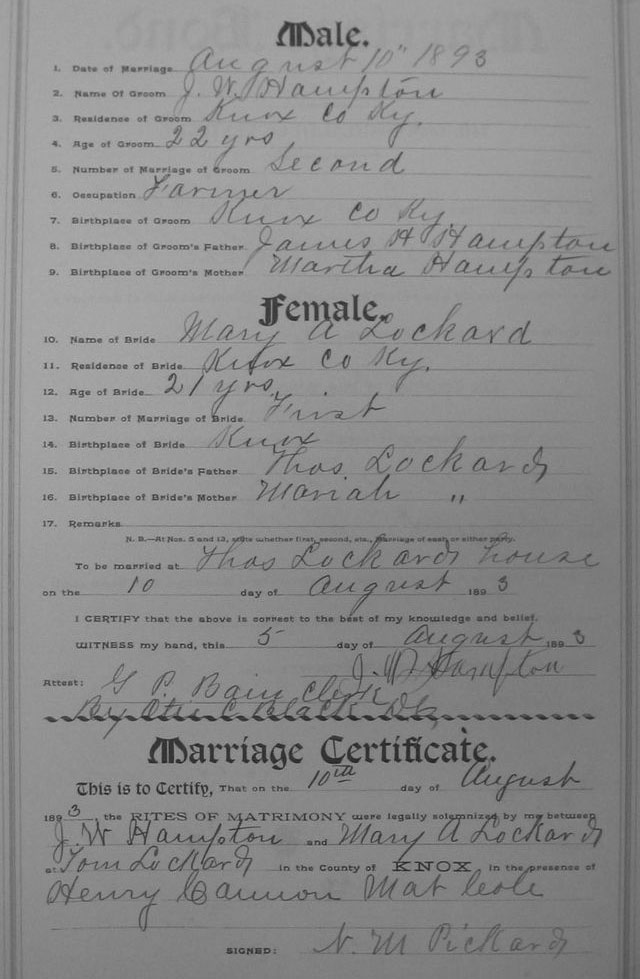 Male.
1. Date of Marriage August 10" 1893
2. Name Of Groom J. W. Hampton
3. Residence of Groom Knox Co Ky.
4. Age of Groom 22 yrs
5. Number of Marriage of Groom Second
6. Occupation Farmer
7. Birthplace of Groom Knox Co Ky.
8. Birthplace of Groom's Father James H Hampton
9. Birthplace of Groom's Mother Martha Hampton
Female.
10. Name of Bride Mary A Lockard
11. Residence of Bride Knox Co Ky.
12. Age of Bride 21 yrs
13. Number of Marriage of Bride First
14. Birthplace of Bride Knox
15. Birthplace of Bride's Father Thos Lockards
16. Birthplace of Bride's Mother Mariah "
17. Remarks
N. B.—At Nos. 5 and 13, state whether first, second, etc., Marriage of each or either party.
To be married at Thos Lockards house
on the 10 day of August 1893
I CERTIFY that the above is correct to the best of my knowledge and belief.
WITNESS my hand, this 5 day of August 1893
J. W. Hampton
Attest: G. P. Bain Clerk
By C Black D.C.
Marriage Certificate.
This is to Certify, That on the 10th day of August
1893, the RITES OF MATRIMONY were legally solemnized by me between
J W Hampton and Mary A Lockards
at Tom Lockards in the County of KNOX, in the presence of
Henry Cannon Mat Cole
SIGNED: N. M Pickards